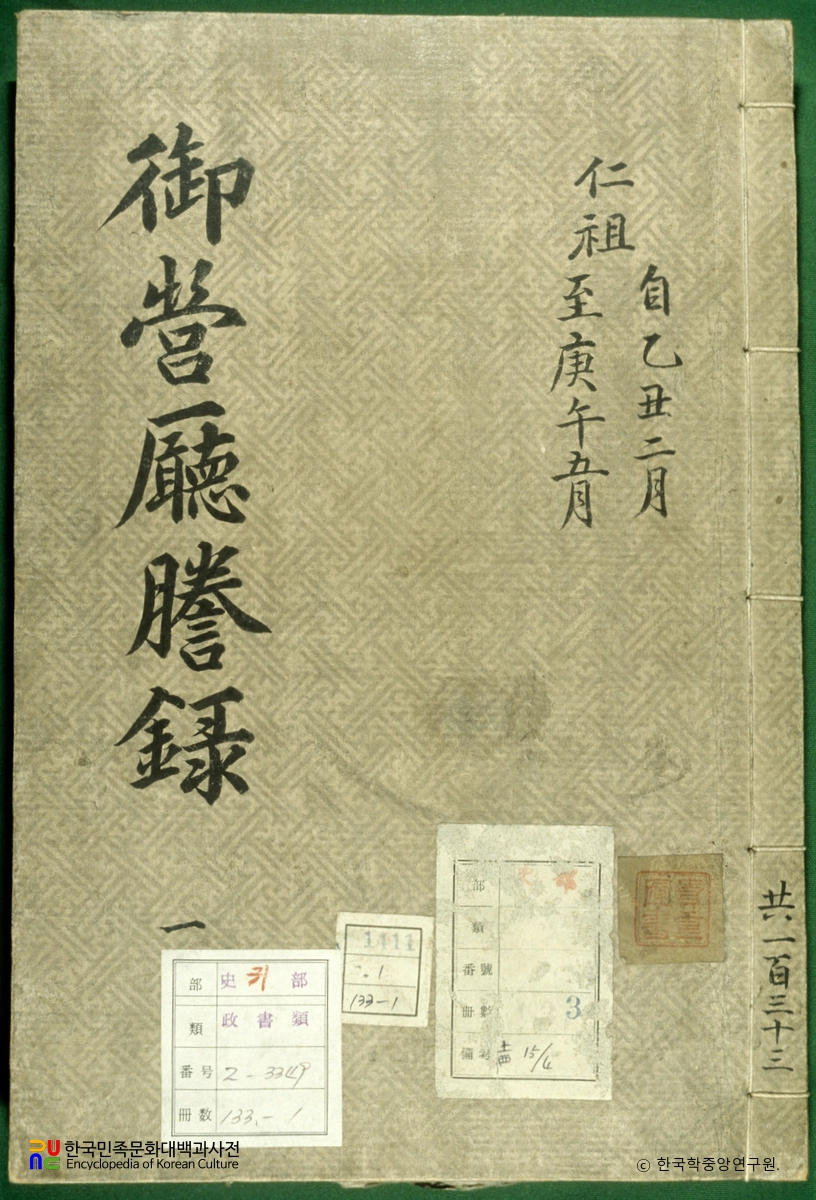 自乙丑二月
仁祖
至庚午五月
御營廳謄錄
一
共一百三十三
部 史 귀 部
類 政書類
番号 2-3349
冊数 133.-1
1
133-1
部
類
番號
冊數 3
備考 15/4
한국민족문화대백과사전
Encyclopedia of Korean Culture
© 한국학중앙연구원.